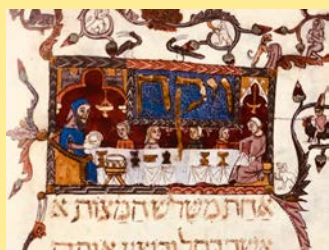 ויקח
אחת משלש המצות א
אותה